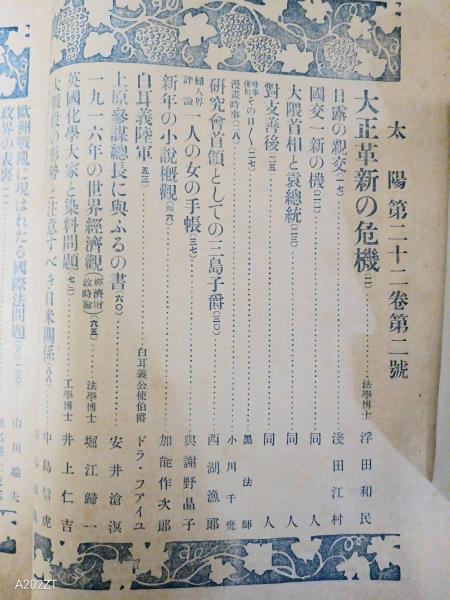 太陽第二十二卷第二號
大正革新の危機(一) 法學博士 浮田和民
日露の親交(一七) 淺田江村
國交一新の機(二一) 同人
大隈首相と袁總統(二三) 同人
對支善後(二五) 同人
時事俳句 その日〱(二七) 黑法師
漫畫時事(二八) 小川千甕
硏究會首領としての三島子爵(三〇) 西湖漁郞
婦人界評論 一人の女の手帳(三七) 與謝野晶子
新年の小說槪觀(四六) 加能作次郞
白耳義陸軍(五三) 白耳義公使伯爵 ドラ・フアイユ
上原參謀總長に與ふるの書(六〇) 安井滄溟
一九一六年の世界經濟觀(六五) 法學博士 堀江歸一
英國化學大家と染料問題(七三) 工學博士 井上仁吉
大戰後の形勢と注意すべき日米關係(八八) 中島信虎
歐洲戰亂に現はれたる國際法問題 山川端夫
政界の表裏
A202ZT